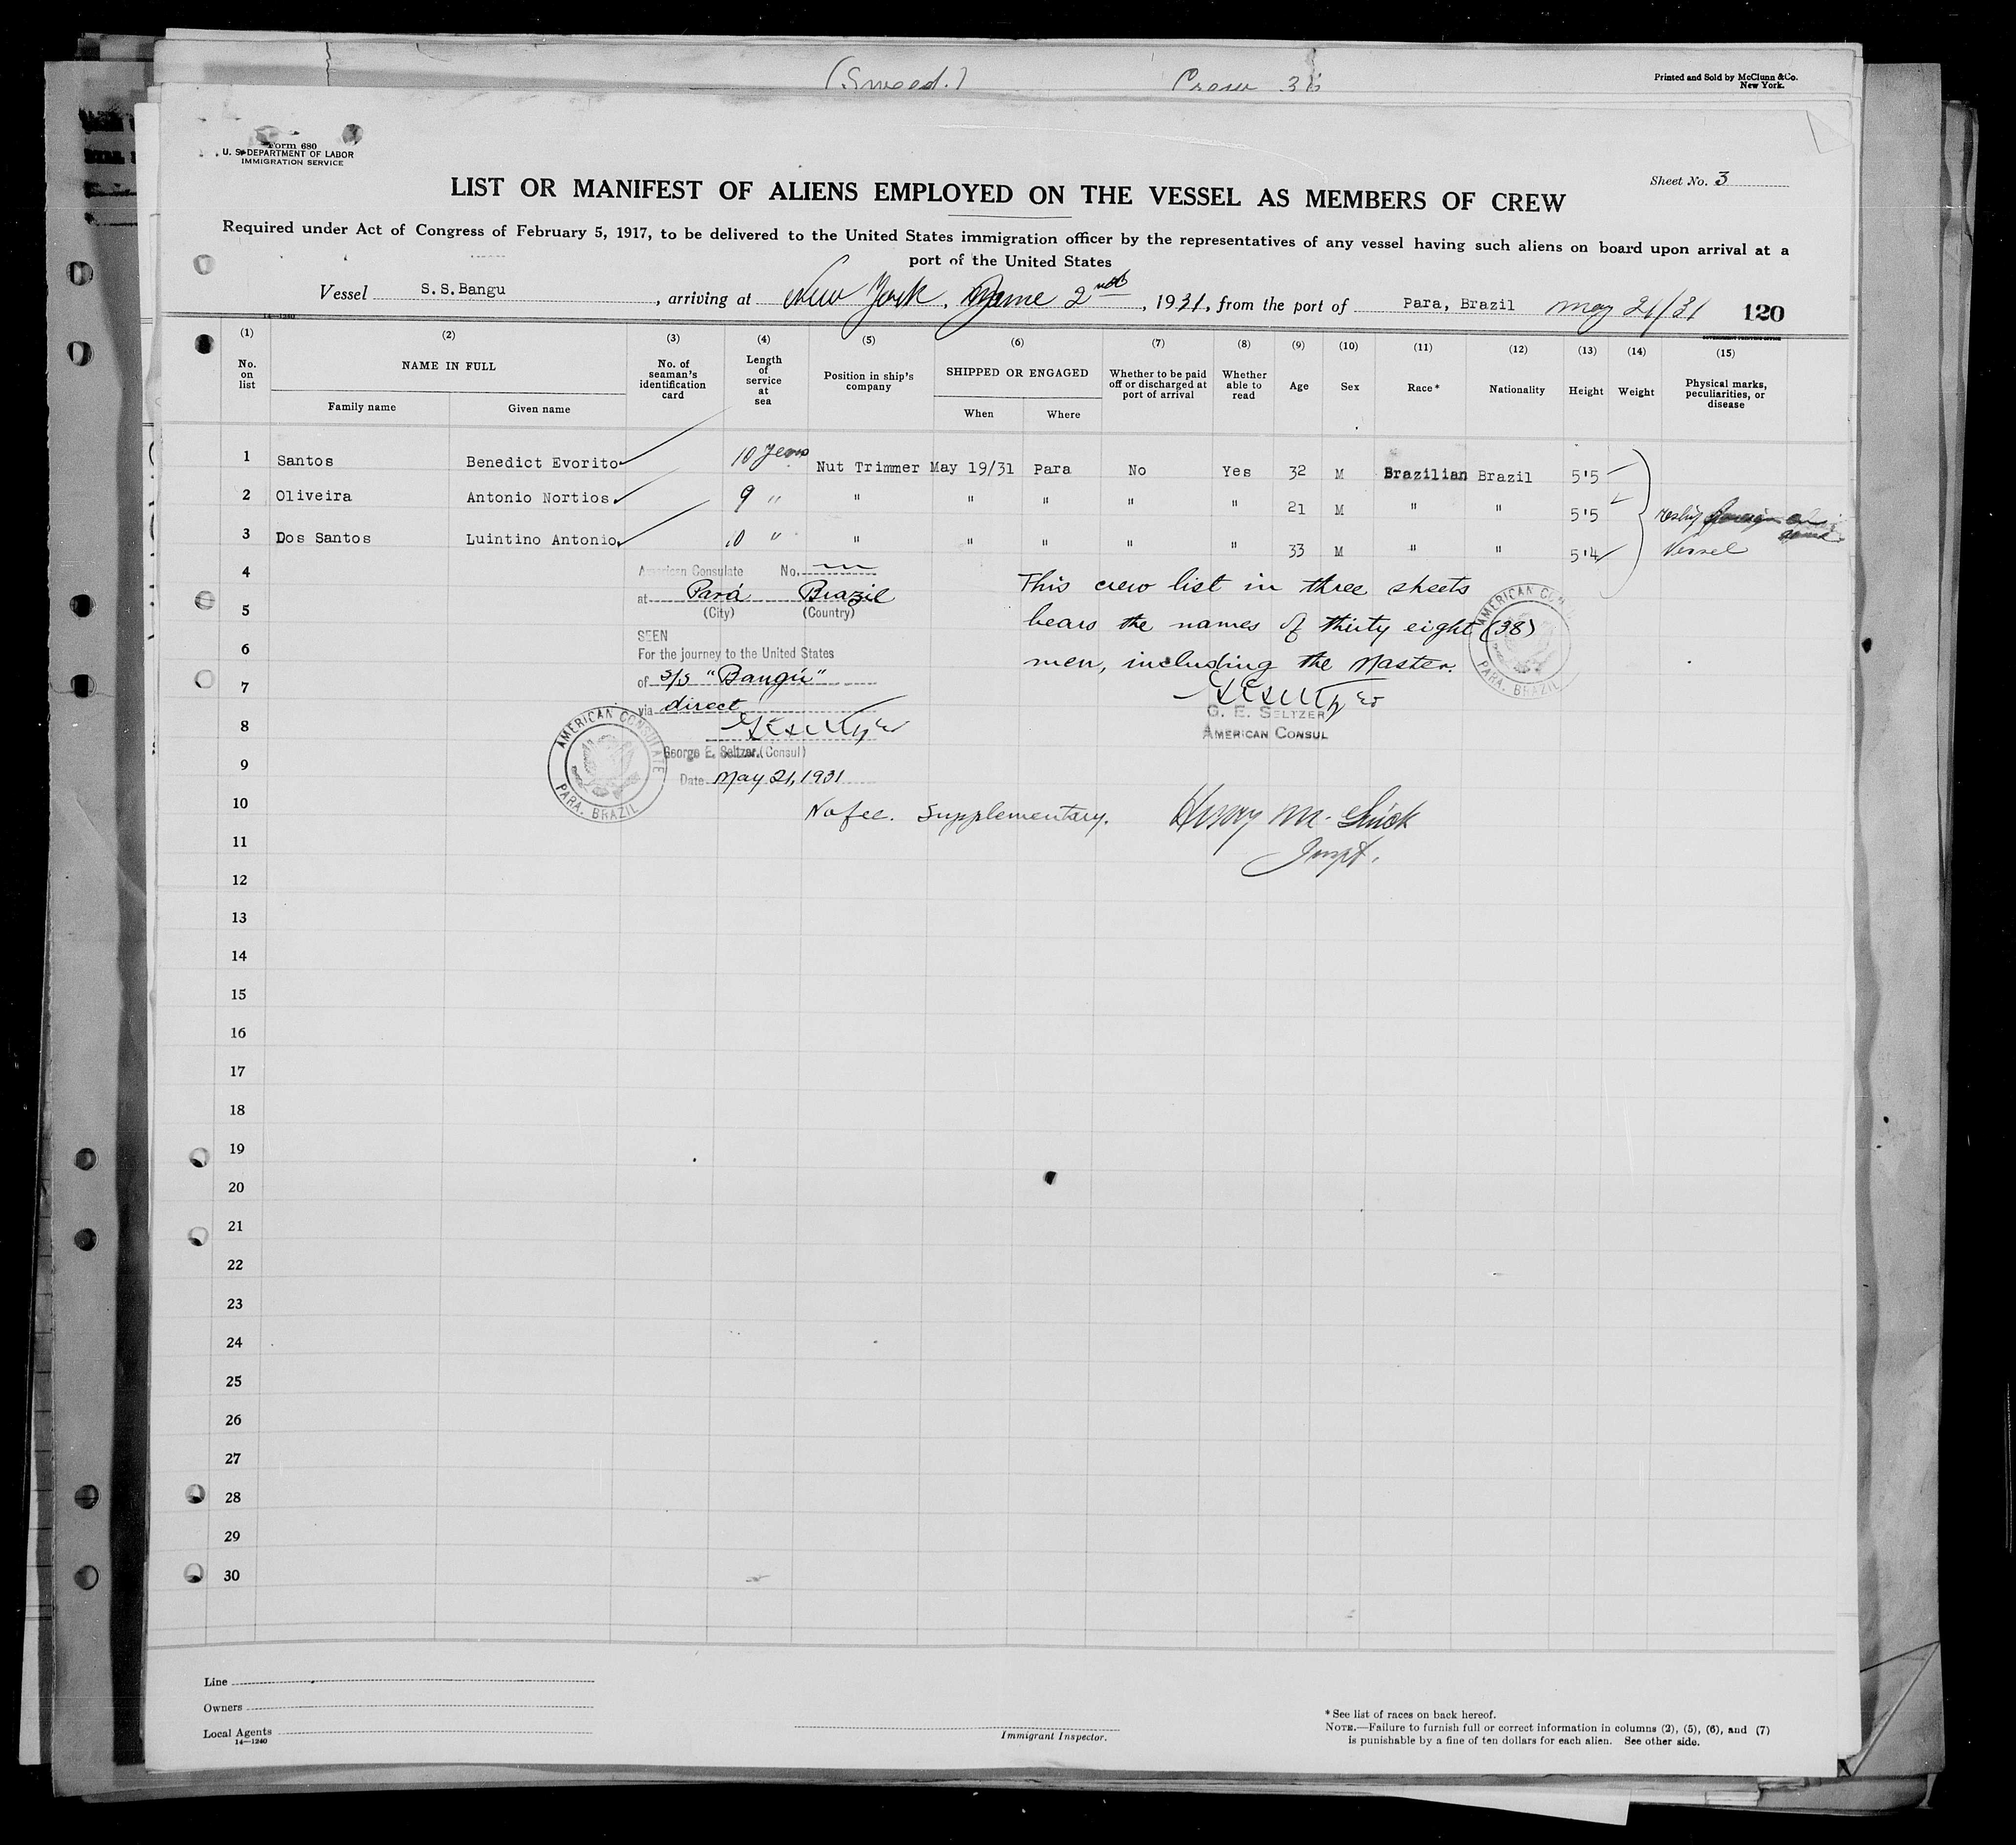 (Swed.) Crew 36
Printed and Sold by McClunn & Co.
New York.
Form 680
U. S. DEPARTMENT OF LABOR
IMMIGRATION SERVICE
Sheet No. 3
LIST OR MANIFEST OF ALIENS EMPLOYED ON THE VESSEL AS MEMBERS OF CREW
Required under Act of Congress of February 5, 1917, to be delivered to the United States immigration officer by the representatives of any vessel having such aliens on board upon arrival at a
port of the United States
Vessel S.S.Bangu, arriving at New York, June 2nd, 1931, from the port of Para, Brazil May 21/31 120
14—1240
GOVERNMENT PRINTING OFFICE
(1) (2) (3) (4) (5) (6) (7) (8) (9) (10) (11) (12) (13) (14) (15)
No. on list NAME IN FULL Family name Given name No. of seaman's identification card Length of service at sea Position in ship's company SHIPPED OR ENGAGED When Where Whether to be paid off or discharged at port of arrival Whether able to read Age Sex Race* Nationality Height Weight Physical marks, peculiarities, or disease
1 Santos Benedict Evorito 10 Years Nut Trimmer May 19/31 Para No Yes 32 M Brazilian Brazil 5'5
2 Oliveira Antonio Nortios 9 " " " " " " 21 M " " 5'5
3 Dos Santos Luintino Antonio 10 " " " " " " 33 M " " 5'4
reship same
Vessel
4
5
6
7
8
9
10
11
12
13
14
15
16
17
18
19
20
21
22
23
24
25
26
27
28
29
30
American Consulate No.
at Pará Brazil
(City) (Country)
SEEN
For the journey to the United States
of S/S "Bangú"
via direct
George E. Seltzer. (Consul)
Date May 21, 1931
AMERICAN CONSULATE
PARA, BRAZIL
No fee. Supplementary.
This crew list in three sheets
bears the names of thirty eight (38)
men, including the Master.
G. E. SELTZER
AMERICAN CONSUL
AMERICAN CONSULATE
PARA, BRAZIL
Inspt.
Line
Owners
Local Agents
14—1240
Immigrant Inspector.
* See list of races on back hereof.
NOTE.—Failure to furnish full or correct information in columns (2), (5), (6), and (7)
is punishable by a fine of ten dollars for each alien. See other side.